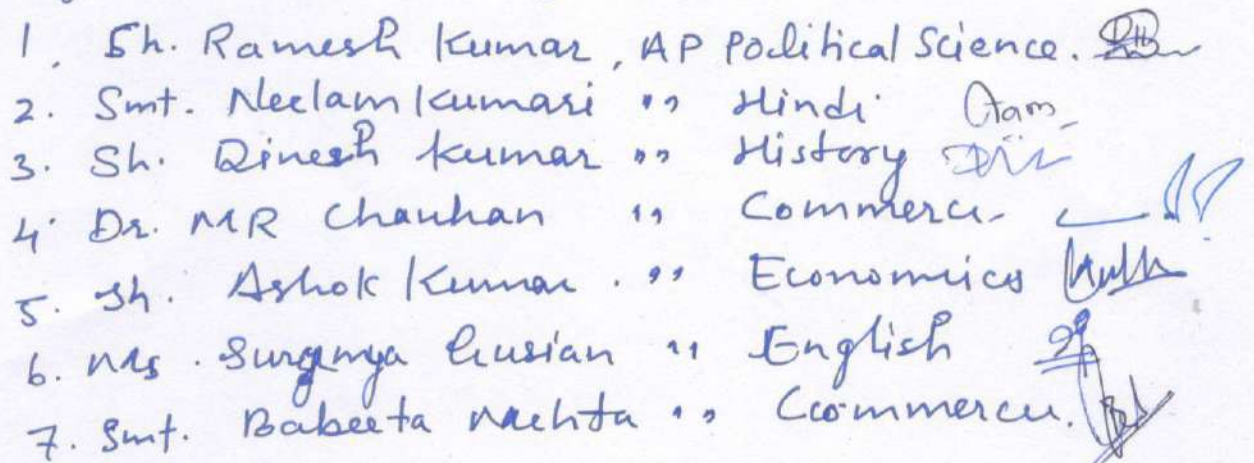 1. Sh. Ramesh Kumar, AP Political Science.
2. Smt. Neelam Kumari " Hindi
3. Sh. Dinesh Kumar " History
4. Dr. MR Chauhan " Commerce
5. Sh. Ashok Kumar. " Economics
6. Ms. " English
7. Smt. Babeeta " Commerce.